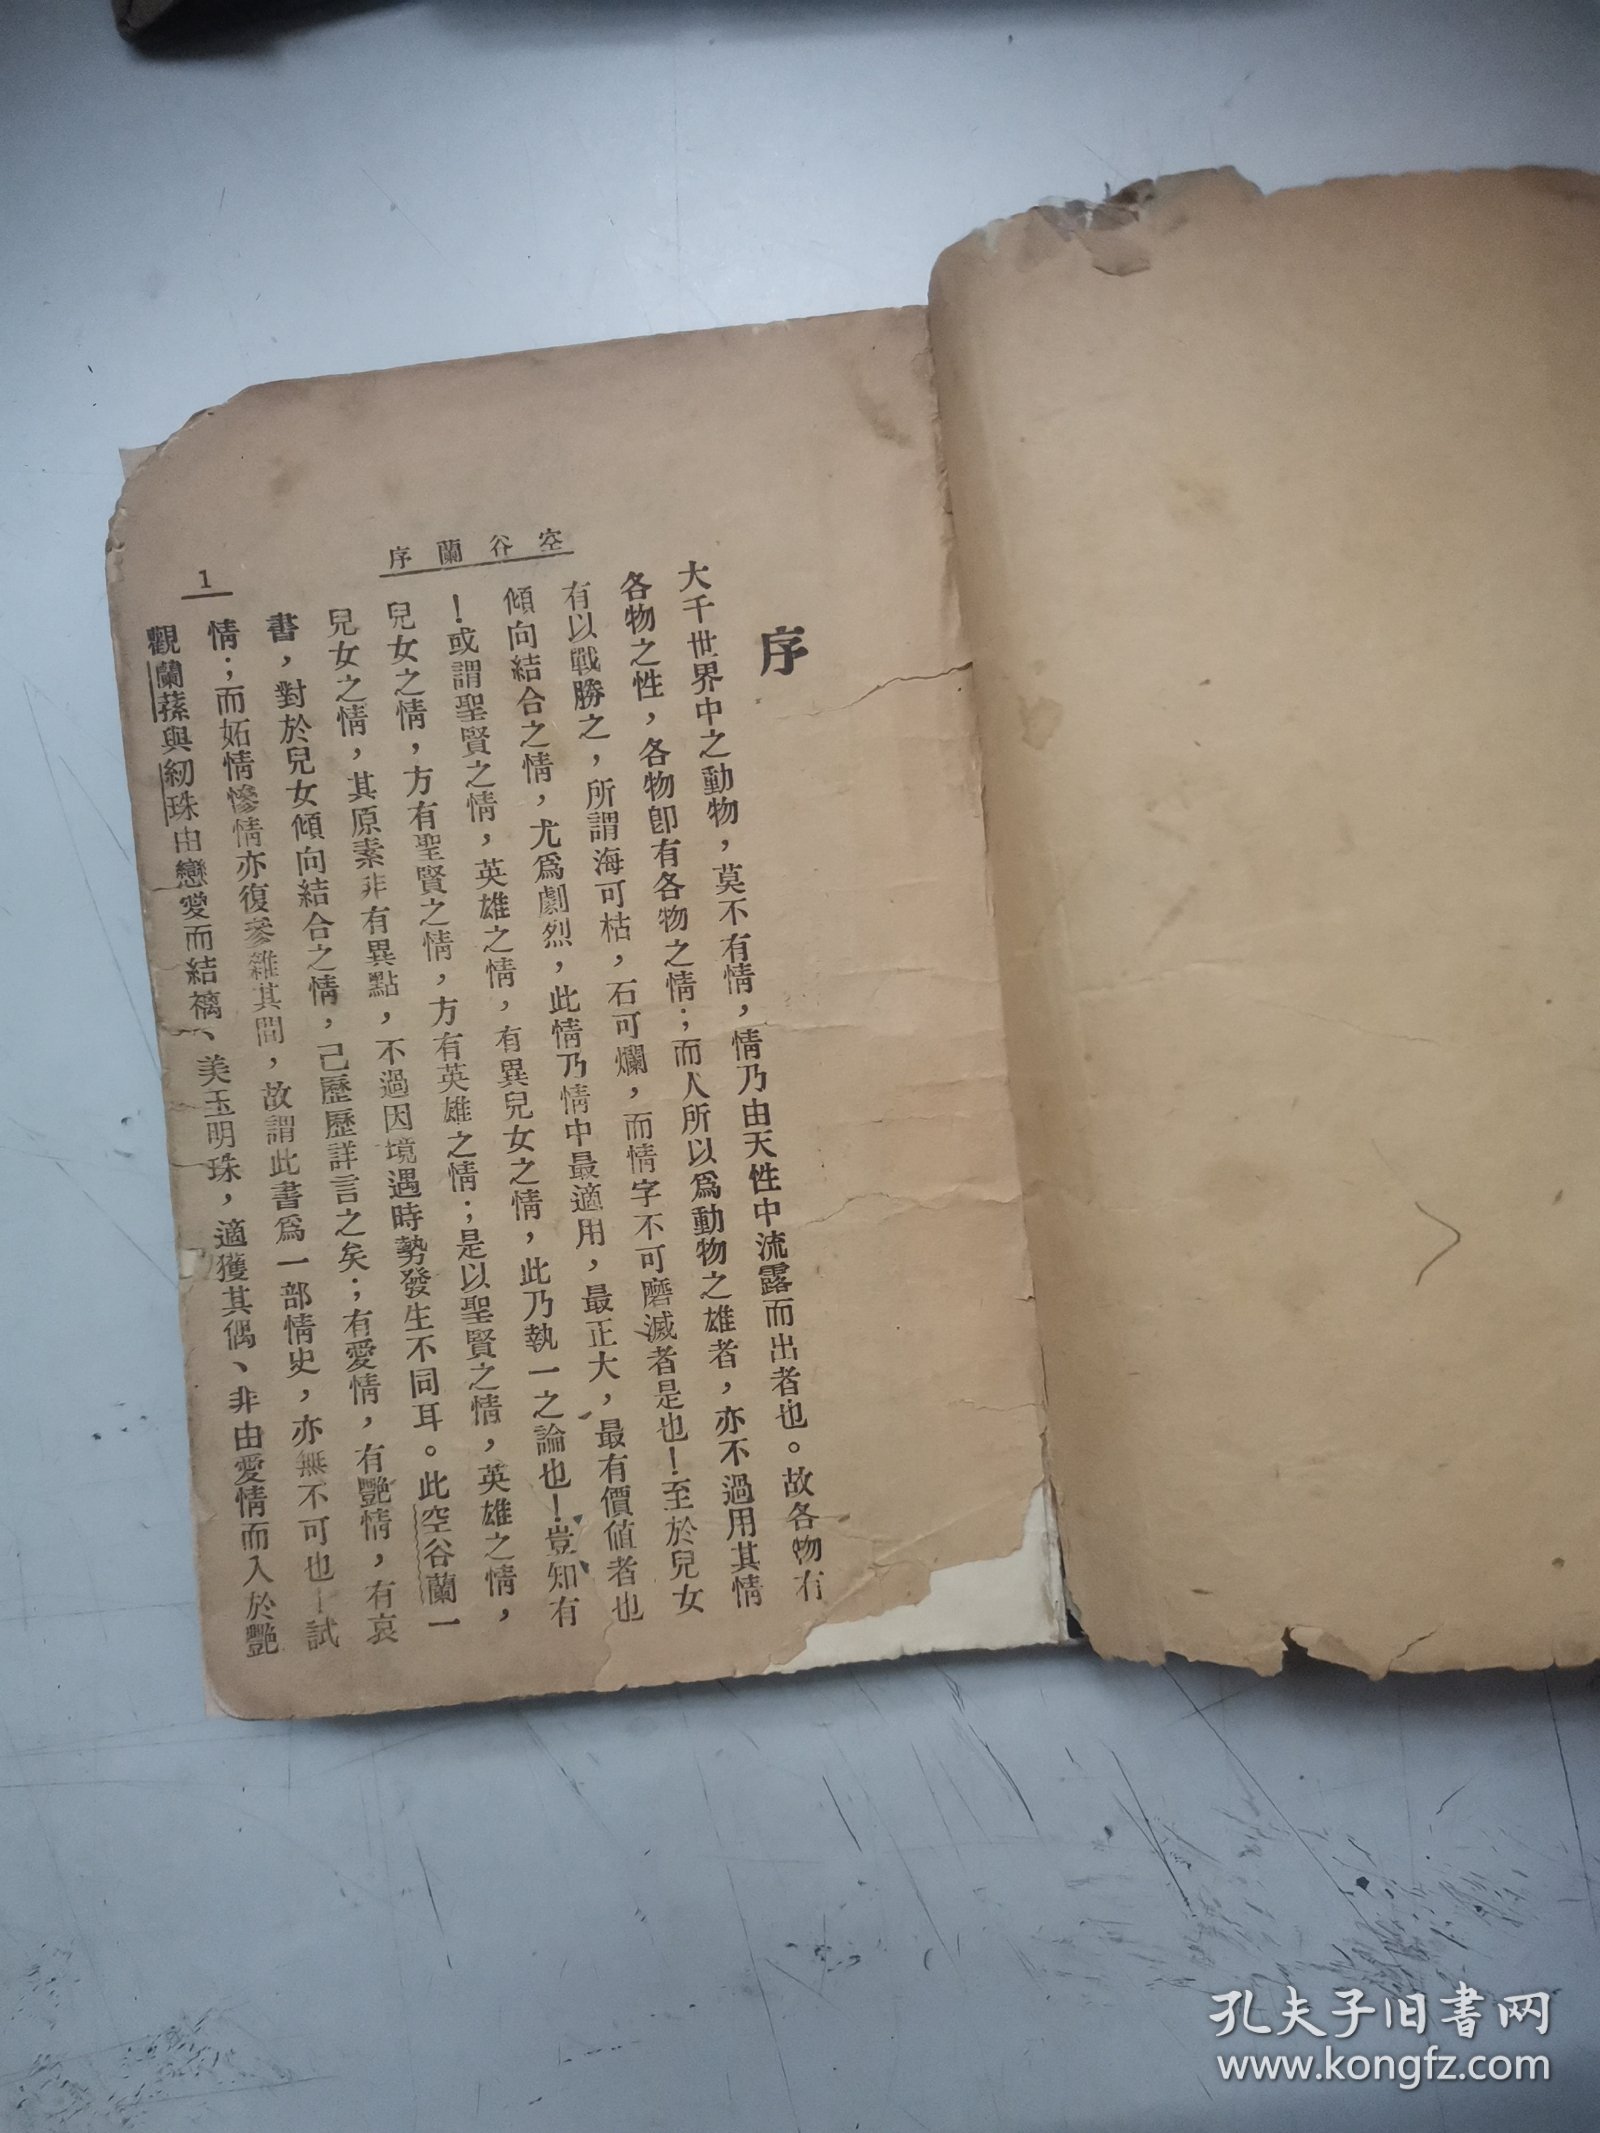 序
大千世界中之動物，莫不有情，情乃由天性中流露而出者也。故各物有
各物之性，各物卽有各物之情；而人所以爲動物之雄者，亦不過用其情
有以戰勝之，所謂海可枯，石可爛，而情字不可磨滅者是也！至於兒女
傾向結合之情，尤爲劇烈，此情乃情中最適用，最正大，最有價值者也
！或謂聖賢之情，英雄之情，有異兒女之情，此乃執一之論也！豈知有
兒女之情，方有聖賢之情，方有英雄之情；是以聖賢之情，英雄之情，
兒女之情，其原素非有異點，不過因境遇時勢發生不同耳。此空谷蘭一
書，對於兒女傾向結合之情，己歷歷詳言之矣；有愛情，有艷情，有哀
情；而妬情慘情亦復參雜其間，故謂此書爲一部情史，亦無不可也！試
觀蘭蓀與紉珠由戀愛而結褵、美玉明珠，適獲其偶、非由愛情而入於艷
空谷蘭序
1
孔夫子旧書网
www.kongfz.com